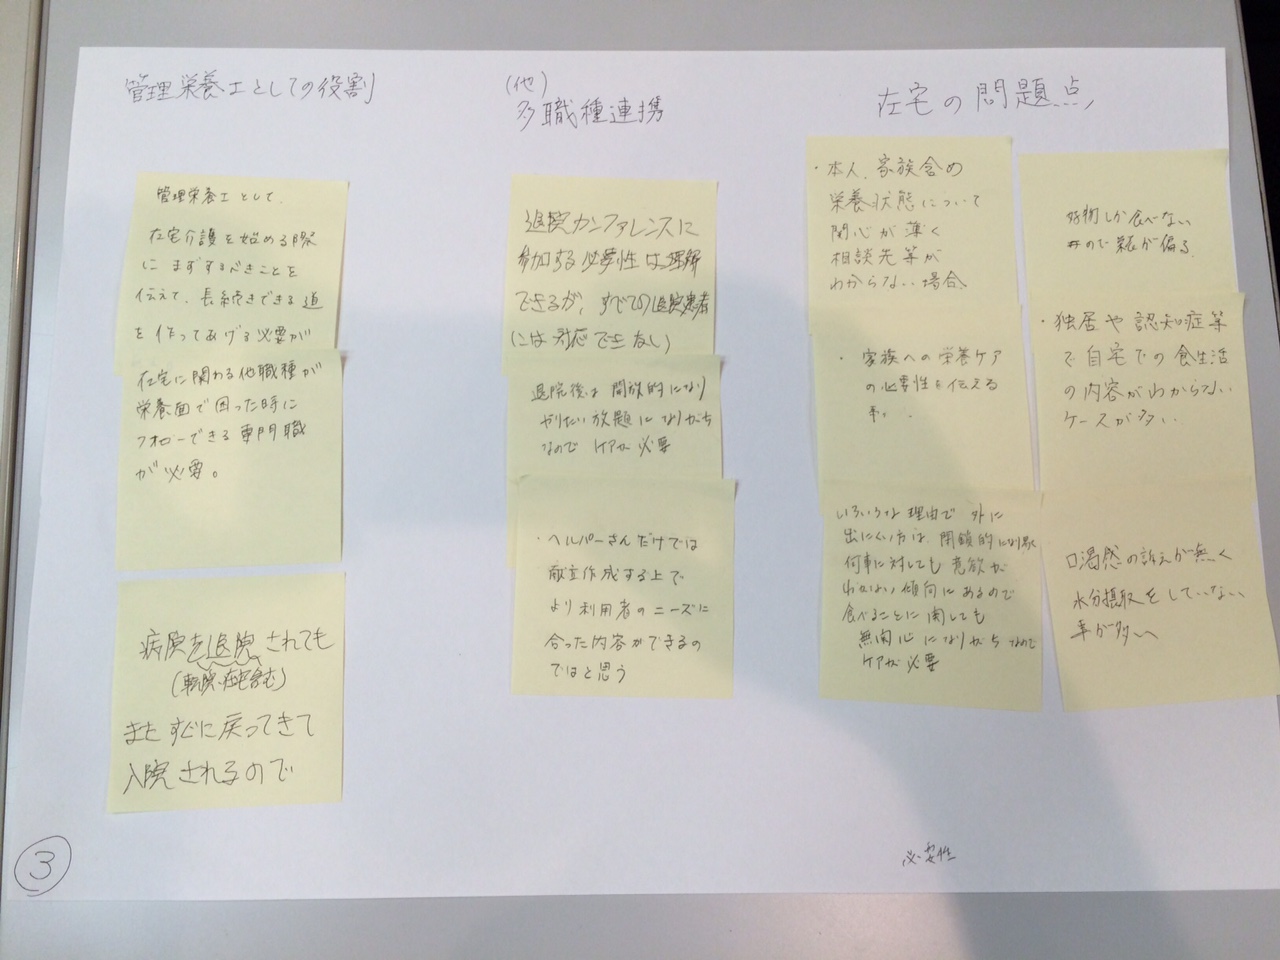 管理栄養士としての役割
管理栄養士として、
在宅介護を始める際
にまずするべきことを
伝えて、長続きできる道
を作ってあげる必要が
在宅に関わる他職種が
栄養面で困った時に
フォローできる専門職
が必要。
病院を退院されても
(転院・在宅含む)
またすぐに戻ってきて
入院されるので
③
(他)
多職種連携
退院カンファレンスに
参加する必要性は理解
できるが、すべての退院患者
には対応できない
退院後は開放的になり
やりたい放題になりがち
なのでケアが必要
・ヘルパーさんだけでは
献立作成する上で
より利用者のニーズに
合った内容ができるの
ではと思う
在宅の問題点
・本人、家族含め
栄養状態について
関心が薄く
相談先等が
わからない場合
・家族への栄養ケア
の必要性を伝える
事。
いろいろな理由で外に
出にくい方は、閉鎖的になり
何事に対しても意欲が
わかない傾向にあるので
食べることに関しても
無関心になりがちなので
ケアが必要
好物しか食べない
ので栄養が偏る。
・独居や認知症等
で自宅での食生活
の内容がわからない
ケースが多い。
口渇感の訴えが無く
水分摂取をしていない
事が多い
必要性